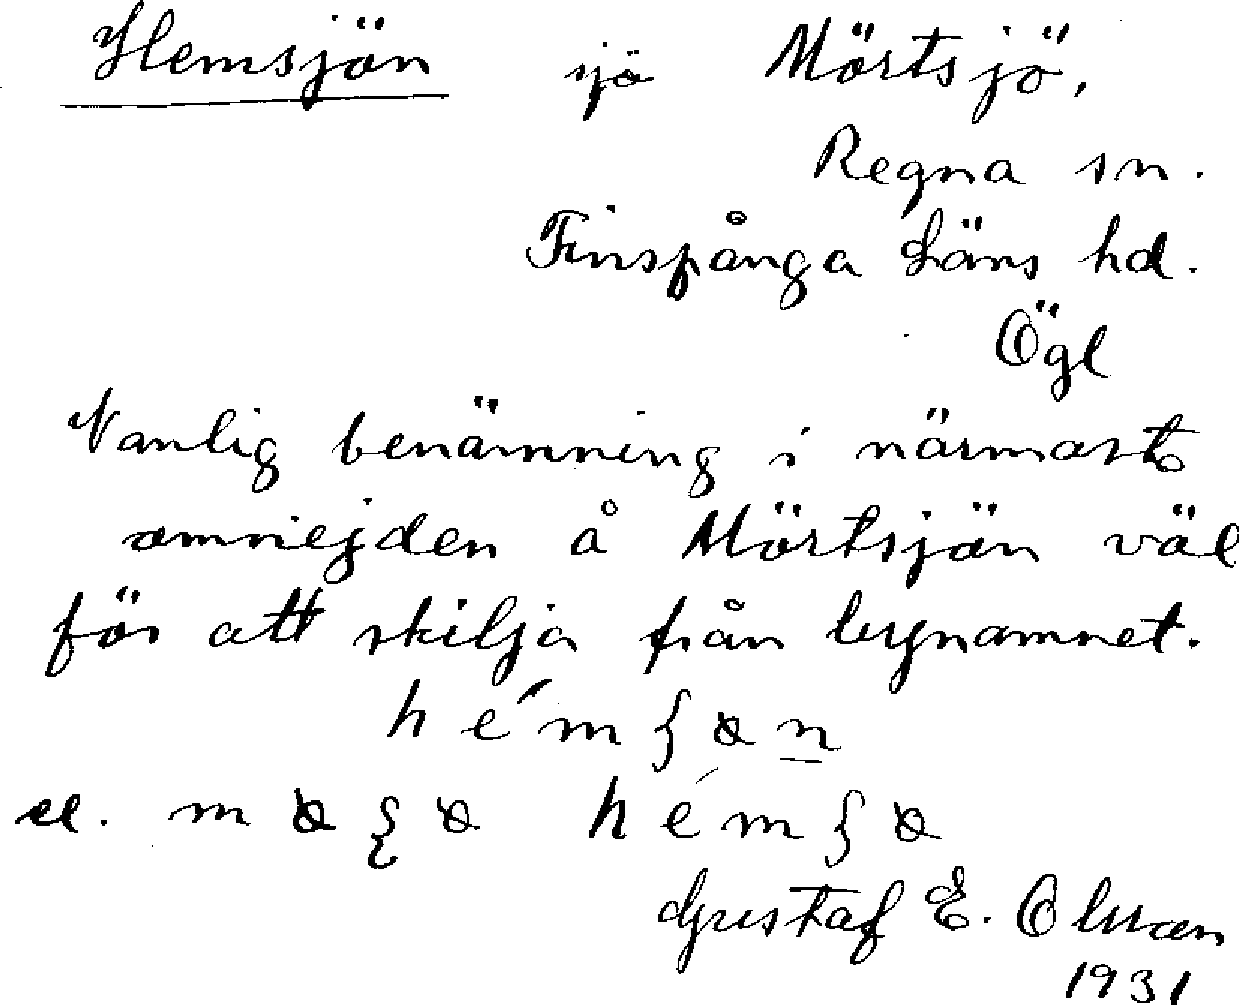 Hemsjön sjö Mörtsjö,
Regna sn.
Finspånga läns hd.
Ögl
Vanlig benämning i närmast
omnejden å Mörtsjön väl
för att skilja från bynamnet.
el.
Gustaf E. Olsson
1931